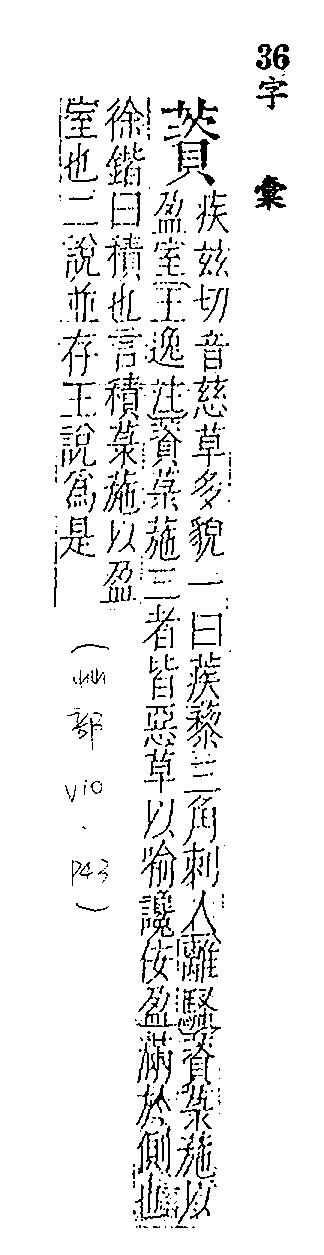 36 字彙
薋 疾玆切音慈草多貌一曰蒺藜三角刺人離騷薋菉葹以
盈室王逸註薋菉葹三者皆惡草以喻讒佞盈滿於側也
徐鍇曰積也言積菉葹以盈
室也二說並存王說爲是
(艸部 V10 . P43)